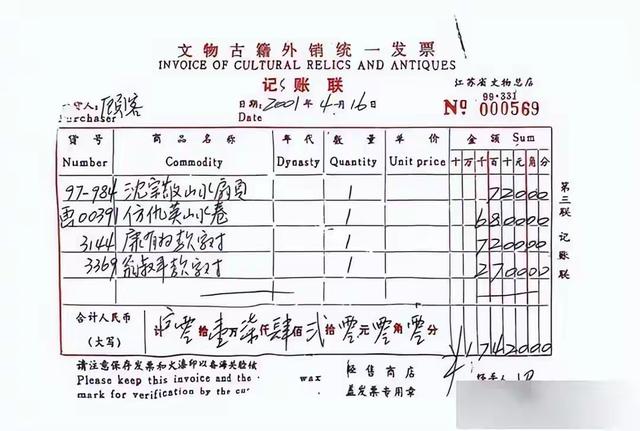 文物古籍外销统一发票
INVOICE OF CULTURAL RELICS AND ANTIQUES
记 账 联
江苏省文物总店
99·331
顾客
Purchaser
日期: 2001年4月16
Date
No 000569
货号 商品名称 年代 数量 单价 金额 Sum
Number Commodity Dynasty Quantity Unit price 十万千百十元角分
97-984 沈宗敬山水扇页 1 72000
00391 仿仇英山水卷 1 680000
3144 康有为款字对 1 720000
3369 翁叔平款字对 1 270000
合计人民币
(大写)
计零拾壹万柒仟肆佰贰拾零元零角零分
¥1742000
第三联 记账联
请注意保存发票和火漆印以备海关验核
Please keep this invoice and the wax
mark for verification by the cu
经售商店
盖发票专用章
经手人